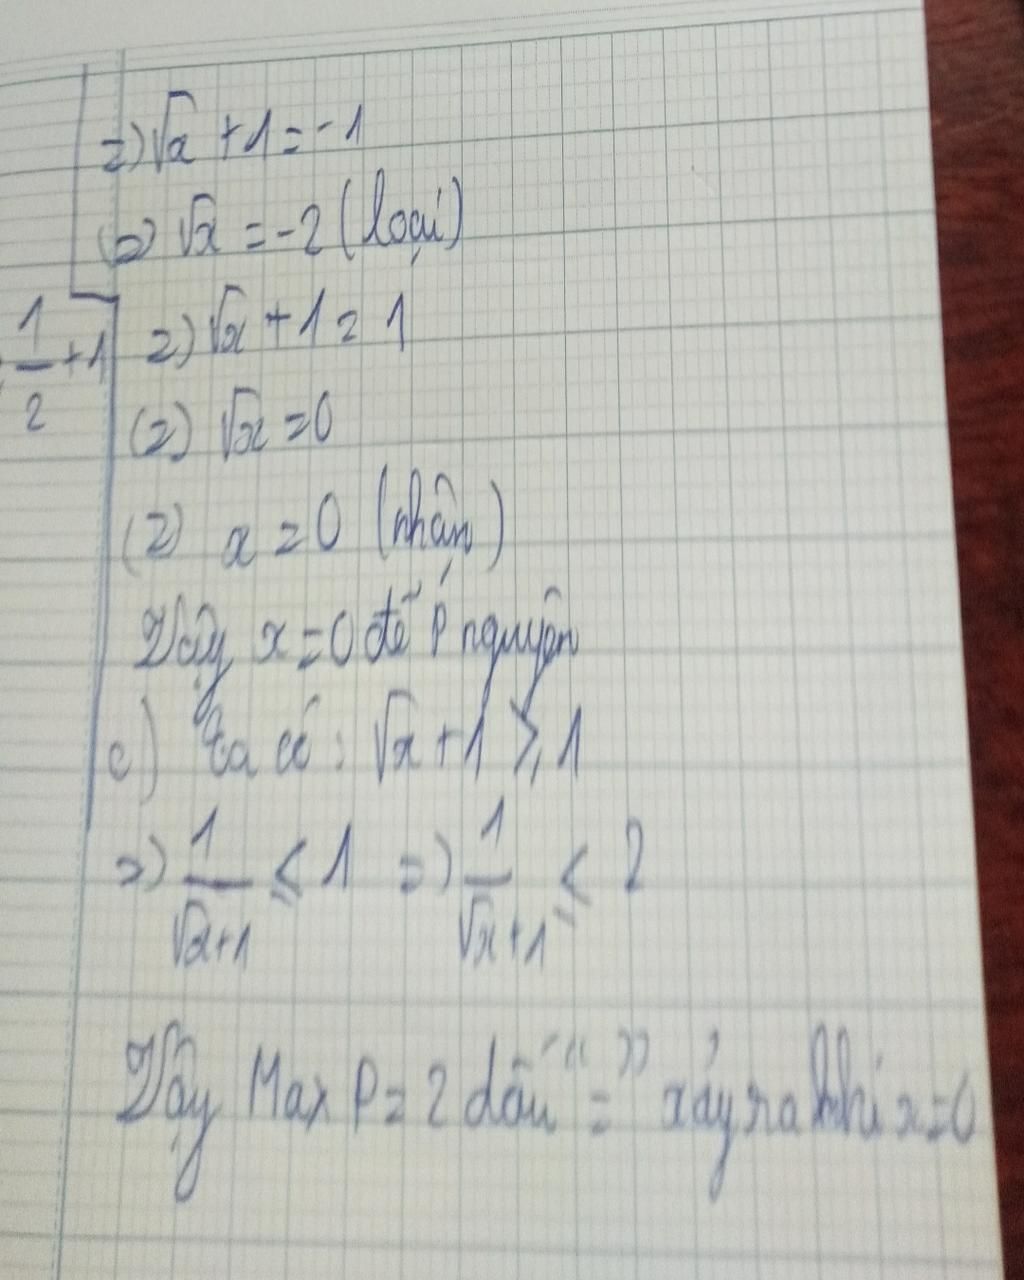 =) √x + 1 = -1
(=) √x = -2 (loại)
1/2 + 1
=) √x + 1 = 1
(=) √x = 0
(=) x = 0 (nhận)
Vậy x = 0 để P nguyên
c) ta có : √x + 1 ≥ 1
=) 1/(√x+1) ≤ 1 =) 1/(√x+1) ≤ 2
Vậy Max P = 2 dấu "=" xảy ra khi x = 0